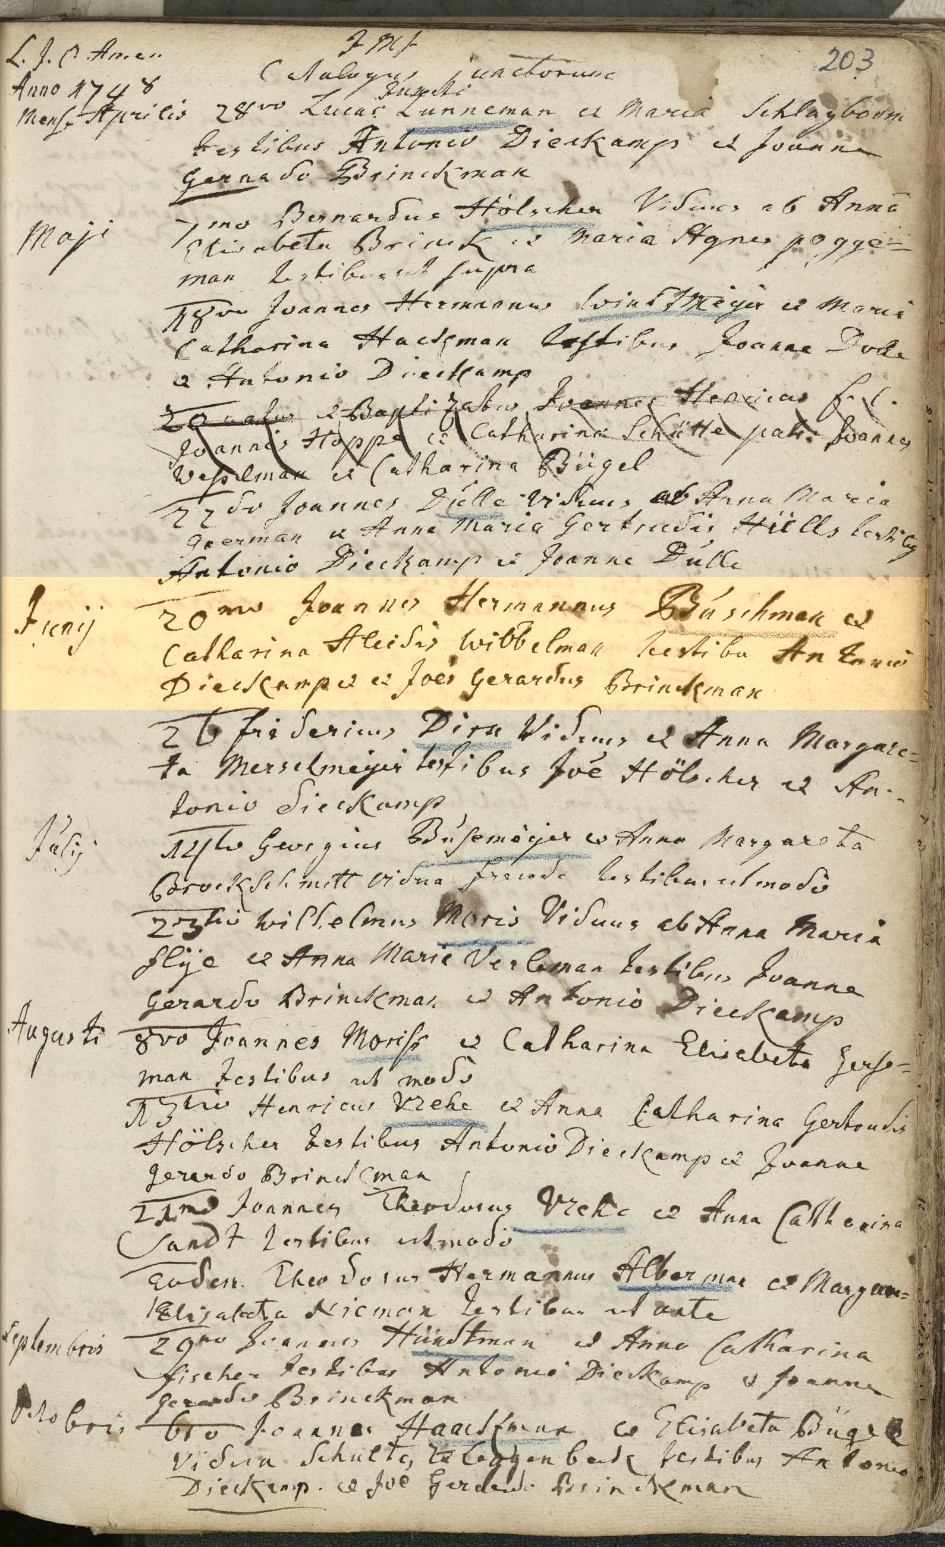 L. J. C. Amen
203
Catalogus junctorum
Anno 1748
Mens. Aprilis 28vo Lucas Lunneman et Maria Schlagboom
testibus Antonio Dieckamp et Joanne
Gerhado Brinckman
Maji 7mo Bernardus Hölscher Viduus ab Anna
Elisabeta Brinck et Maria Agnes pogge=
man testibus ut supra
18vo Joannes Hermannus Windtmeijer et Maria
Catharina Hackman testibus Joanne Dulle
et Antonio Dieckamp
20 natus et Baptizatus Joannes Henricus f. l.
Joannis Hoppe et Catharina Schütte patr. Joannes
Wesselman et Catharina Bügel
22do Joannes Dülle Viduus ab Anna Maria
geerman et Anna Maria Gertrudis Hülls testibus
Antonio Dieckamp et Joanne Dulle
Junij 20mo Joannes Hermannus Büschman et
Catharina Aleidis Wibbelman testibu Antonio
Dieckamp et et Joes Gerardus Brinckman
26 fridericus Dirx Viduus et Anna Margare=
ta Merschmeijer testibus Joe Hölscher et An-
tonio Dieckamp
Julij 12tio Georgius Büsemeijer et Anna Margareta
Brockschmitt Vidua testibus ut modo
23tio Wilhelmus Moris Viduus ab Anna Maria
slije et Anna Maria Verleman testibus Joanne
Gerardo Brinckman et Antonio Dieckamp
Augusti 8vo Joannes Moriss et Catharina Elisabeta Gerse=
man testibus ut modo
13tio Henricus Vrehe et Anna Catharina Gertrudis
Hölscher testibus Antonio Dieckamp et Joanne
Gerardo Brinckman
21mo Joannes Theodorus Vrehe et Anna Catharina
Sandt testibus ut modo
Eodem Theodorus Hermannus Alberman et Margar=
Elisabeta Nieman testibus ut ante
Septembris 29no Joannes Hündtman et Anna Catharina
fischer testibus Antonio Dieckamp et Joanne
Gerardo Brinckman
Octobris 6to Joannes Haackman et Elisabeta Bügel
Vidua Schulte testibus Antonio
Dieckamp et Joe Gerardo Brinckman